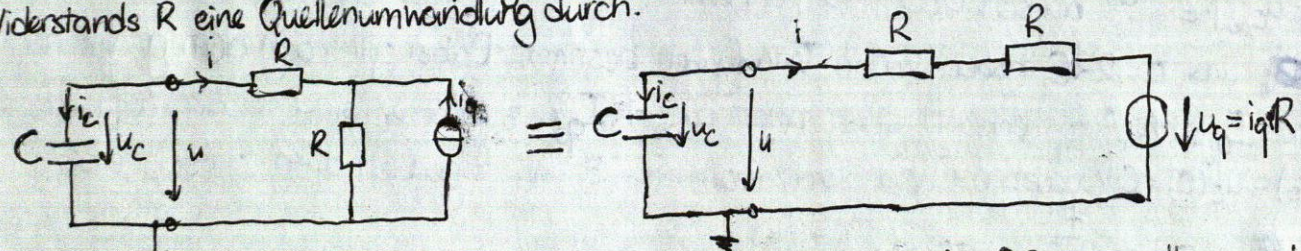 Widerstands R eine Quellenumwandlung durch.
i R
i R R
C i_c u_c u R i_q ≡ C i_c u_c u u_q = i_q·R